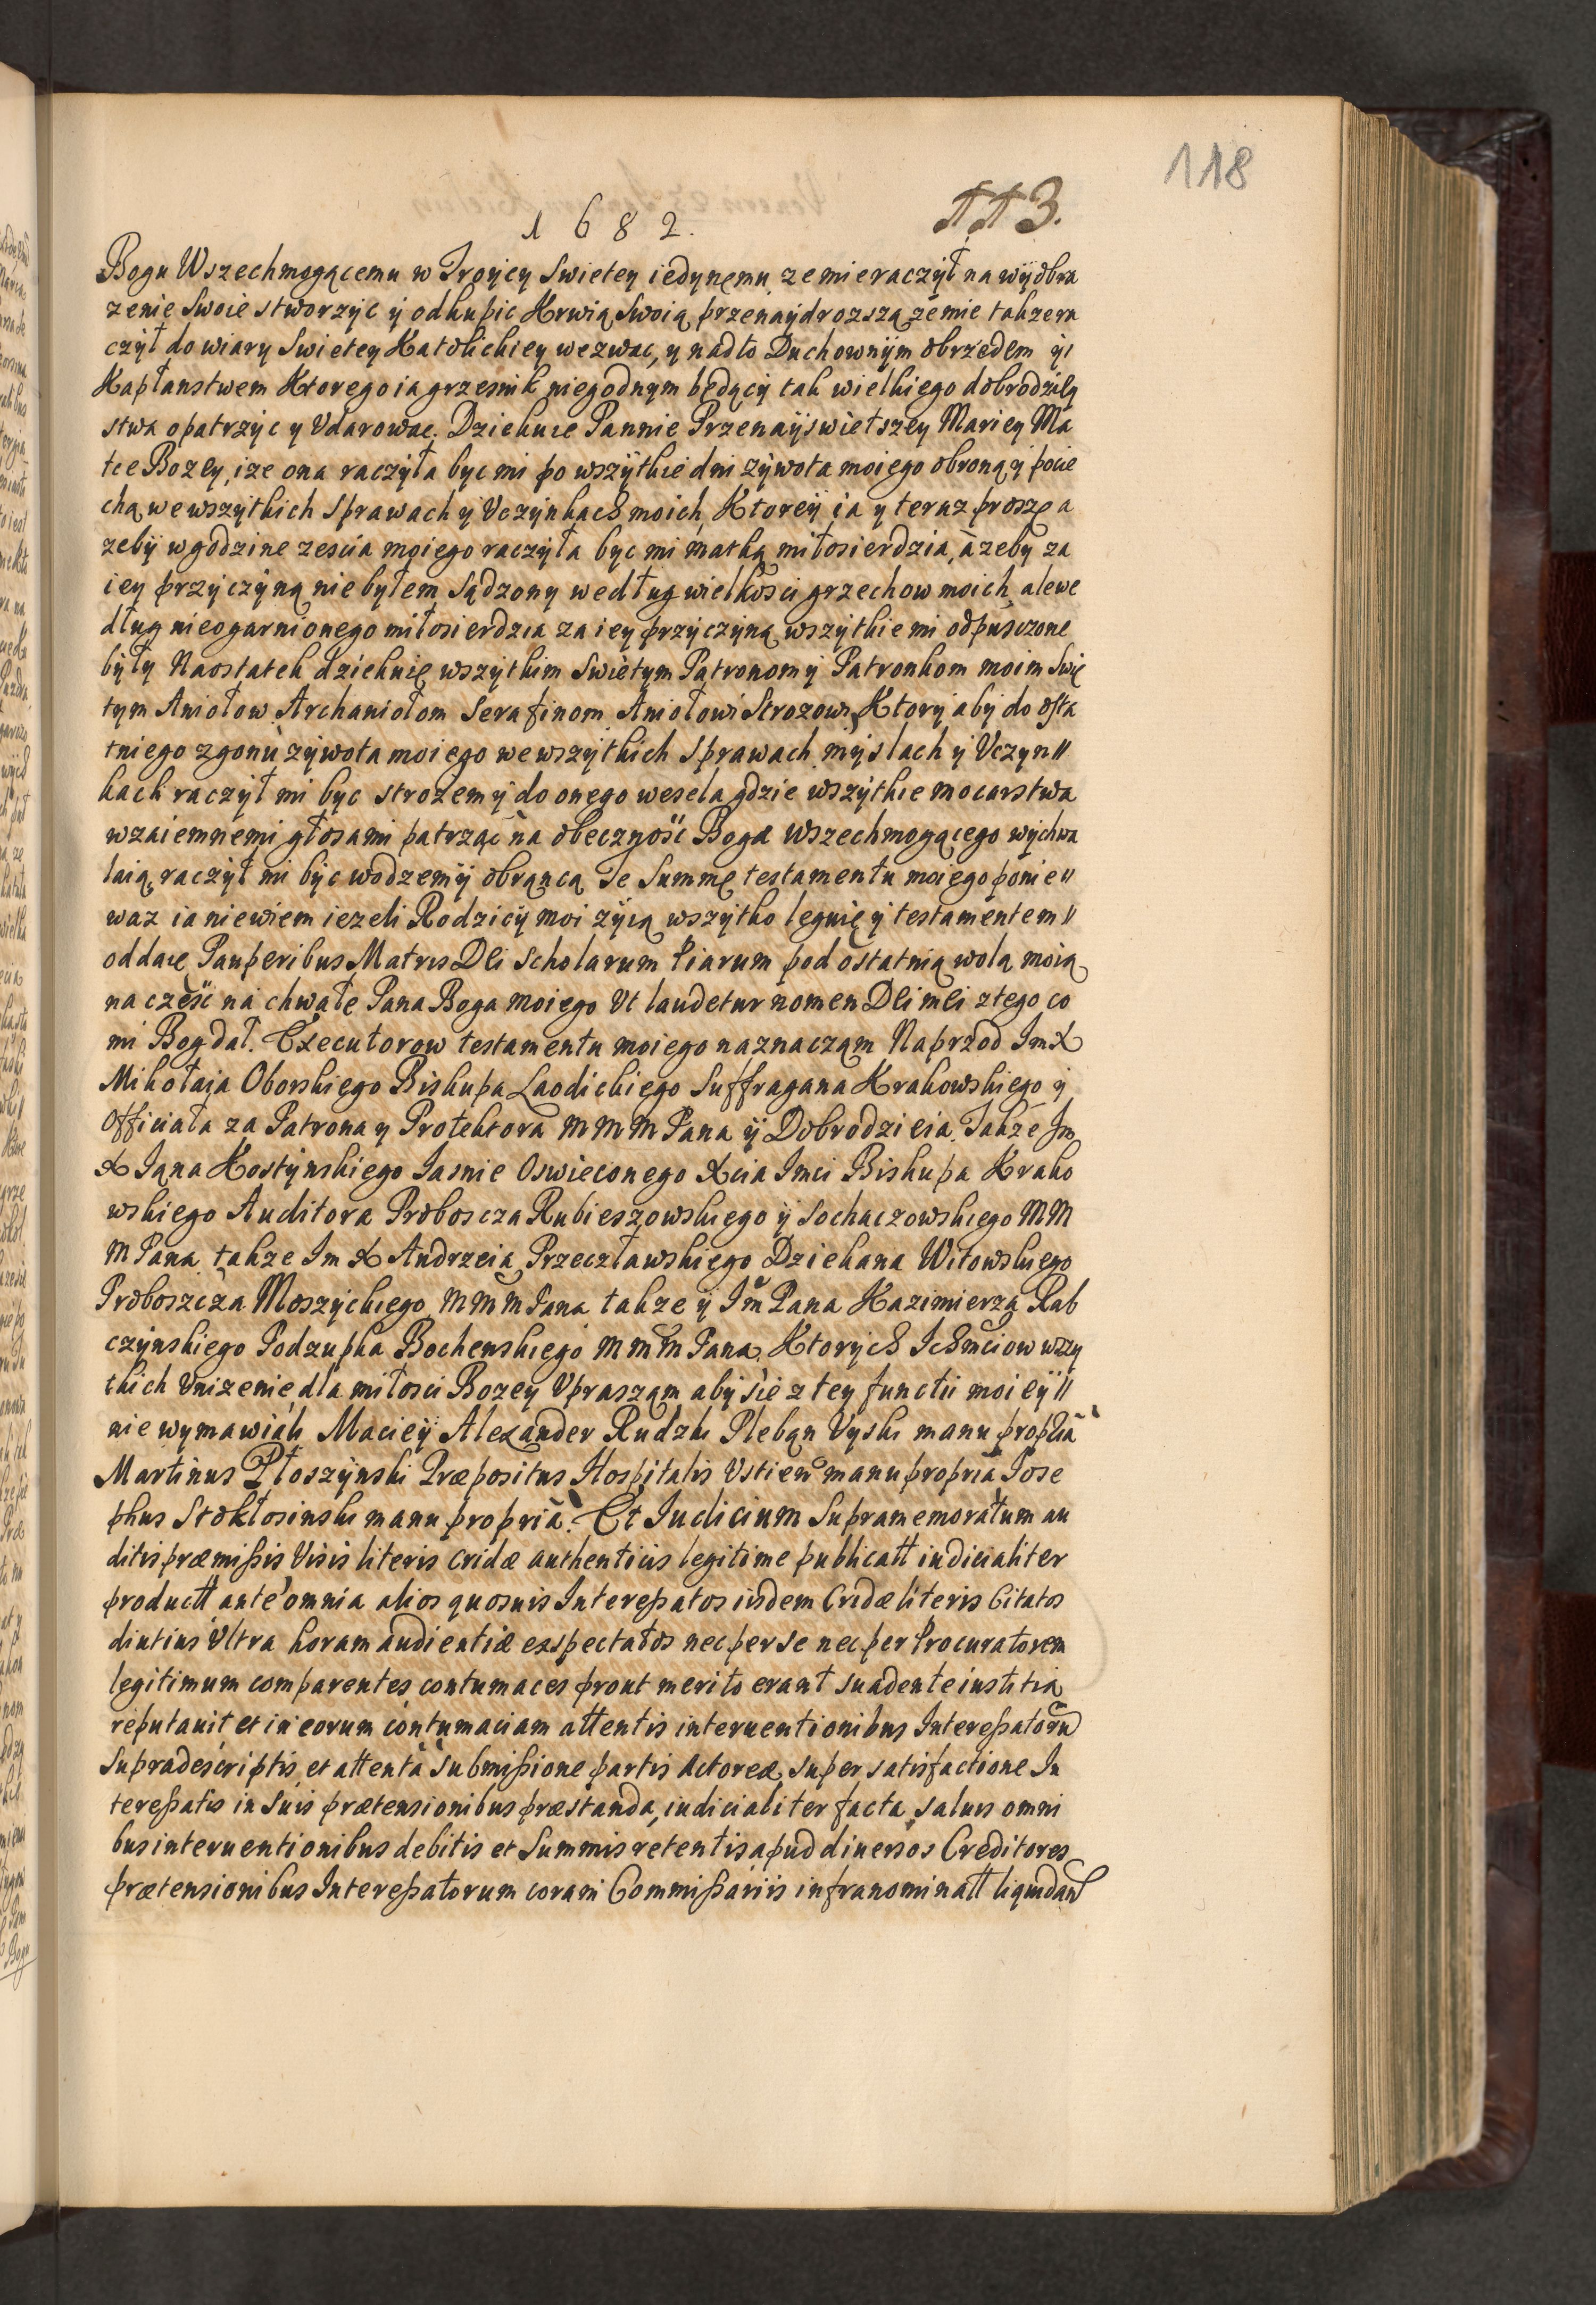 118
1682.
113.
Bogu Wszechmogącemu w Troycy Swietey iedynemu ze mie raczył na wyobra
zenie Swoie stworzyc y odkupic Krwią Swoią przenaydrozszą ze mie takze ra
czył do wiary Swietey Katolickiey wezwac, y nadto Duchownym obrzedem y
Kapłanstwem Ktorego ia grzesnik niegodnym będący tak wielkiego dobrodziey
stwa opatrzyc y Udarowac. Dziekuie Pannie Przenayswietszey Mariey Ma
tce Bozey, ize ona raczyła byc mi po wszytkie dni zywota moiego obroną y pocie
chą we wszytkich Sprawach y Uczynkach moich, Ktorey ia y teraz proszę a
zeby w godzine zescia moiego raczyła byc mi matką miłosierdzia, azeby za
iey przyczyną nie byłem Sądzony według wielkosci grzechow moich, ale we
dług nieogarnionego miłosierdzia za iey przyczyną wszytkie mi odpusczone
były Naostatek dziekuię wszytkim Swietym Patronom y Patronkom moim Swię
tym Aniołow Archaniołom Serafinom Aniołowi Strozowi Ktory aby do osta
tniego zgonu zywota moiego we wszytkich Sprawach myslach y Uczyn//
kach raczył mi byc strozem y do onego wesela gdzie wszytkie mocarstwa
wzaiemnemi głosami patrząc na obecznośc Boga Wszechmogącego wychwa
laią, raczył mi byc wodzem y obrąncą Te Summę testamentu moiego ponie//
waz ia niewiem iezeli Rodzicy moi zyią wszytko leguię y testamentem//
oddaię Pauperibus Matris Dei Scholarum Piarum pod ostatnią wolą moią
na cześć na chwałe Pana Boga moiego Ut laudetur nomen Dei mei z tego co
mi Bog dał. Executorow testamentu moiego naznaczam Naprzod Im X
Mikołaia Oborskiego Biskupa Laodickiego Suffragana Krakowskiego y
Officiała za Patrona y Protektora M M M Pana y Dobrodzieia. Takze Im
X Iana Kostynskiego Iasnie Oswieconego Xcia Imci Biskupa Krako
wskiego Auditora Proboscza Rubieszowskiego y Sochaczowskiego MM
M Pana takze Im X Andrzeia Przecztawskiego Dziekana Witowskiego
Proboszcza Moszyckiego M M M Pana takze y Im Pana Kazimierza Rab
czynskiego Podzupka Bochenskiego M M M Pana. Ktorych Ichmciow wszy
tkich Unizenie dla miłosci Bozey Upraszam aby sie z tey functii moiey//
nie wymawiali Maciey Alexander Rudzki Pleban Uyski manu propria
Martinus Płoszynski Præpositus Hospitalis Ustien manu propria Iose
phus Stokłosinski manu propria. Et Iudicium Supramemoratum au
ditis præmissis Visis literis cridæ authenticis legitime publicatt iudicialiter
productt ante omnia alios quosuis Interessatos iisdem Cridæ literis Citatos
diutius Ultra horam audientiæ exspectatos nec per se nec per Procuratorem
legitimum comparentes contumaces prout merito erant suadente iustitia
reputauit et in eorum contumaciam attentis interuentionibus Interessatoru
Supradescriptis et attenta submissione partis Actoreæ super satisfactione In
teressatis in Suis prætensionibus præstanda, iudicialiter facta saluis omni
bus interuentionibus debitis et Summis retentis apud diuersos Creditores
prætensionibus Interessatorum coram Commissariis infranominatt liquidand